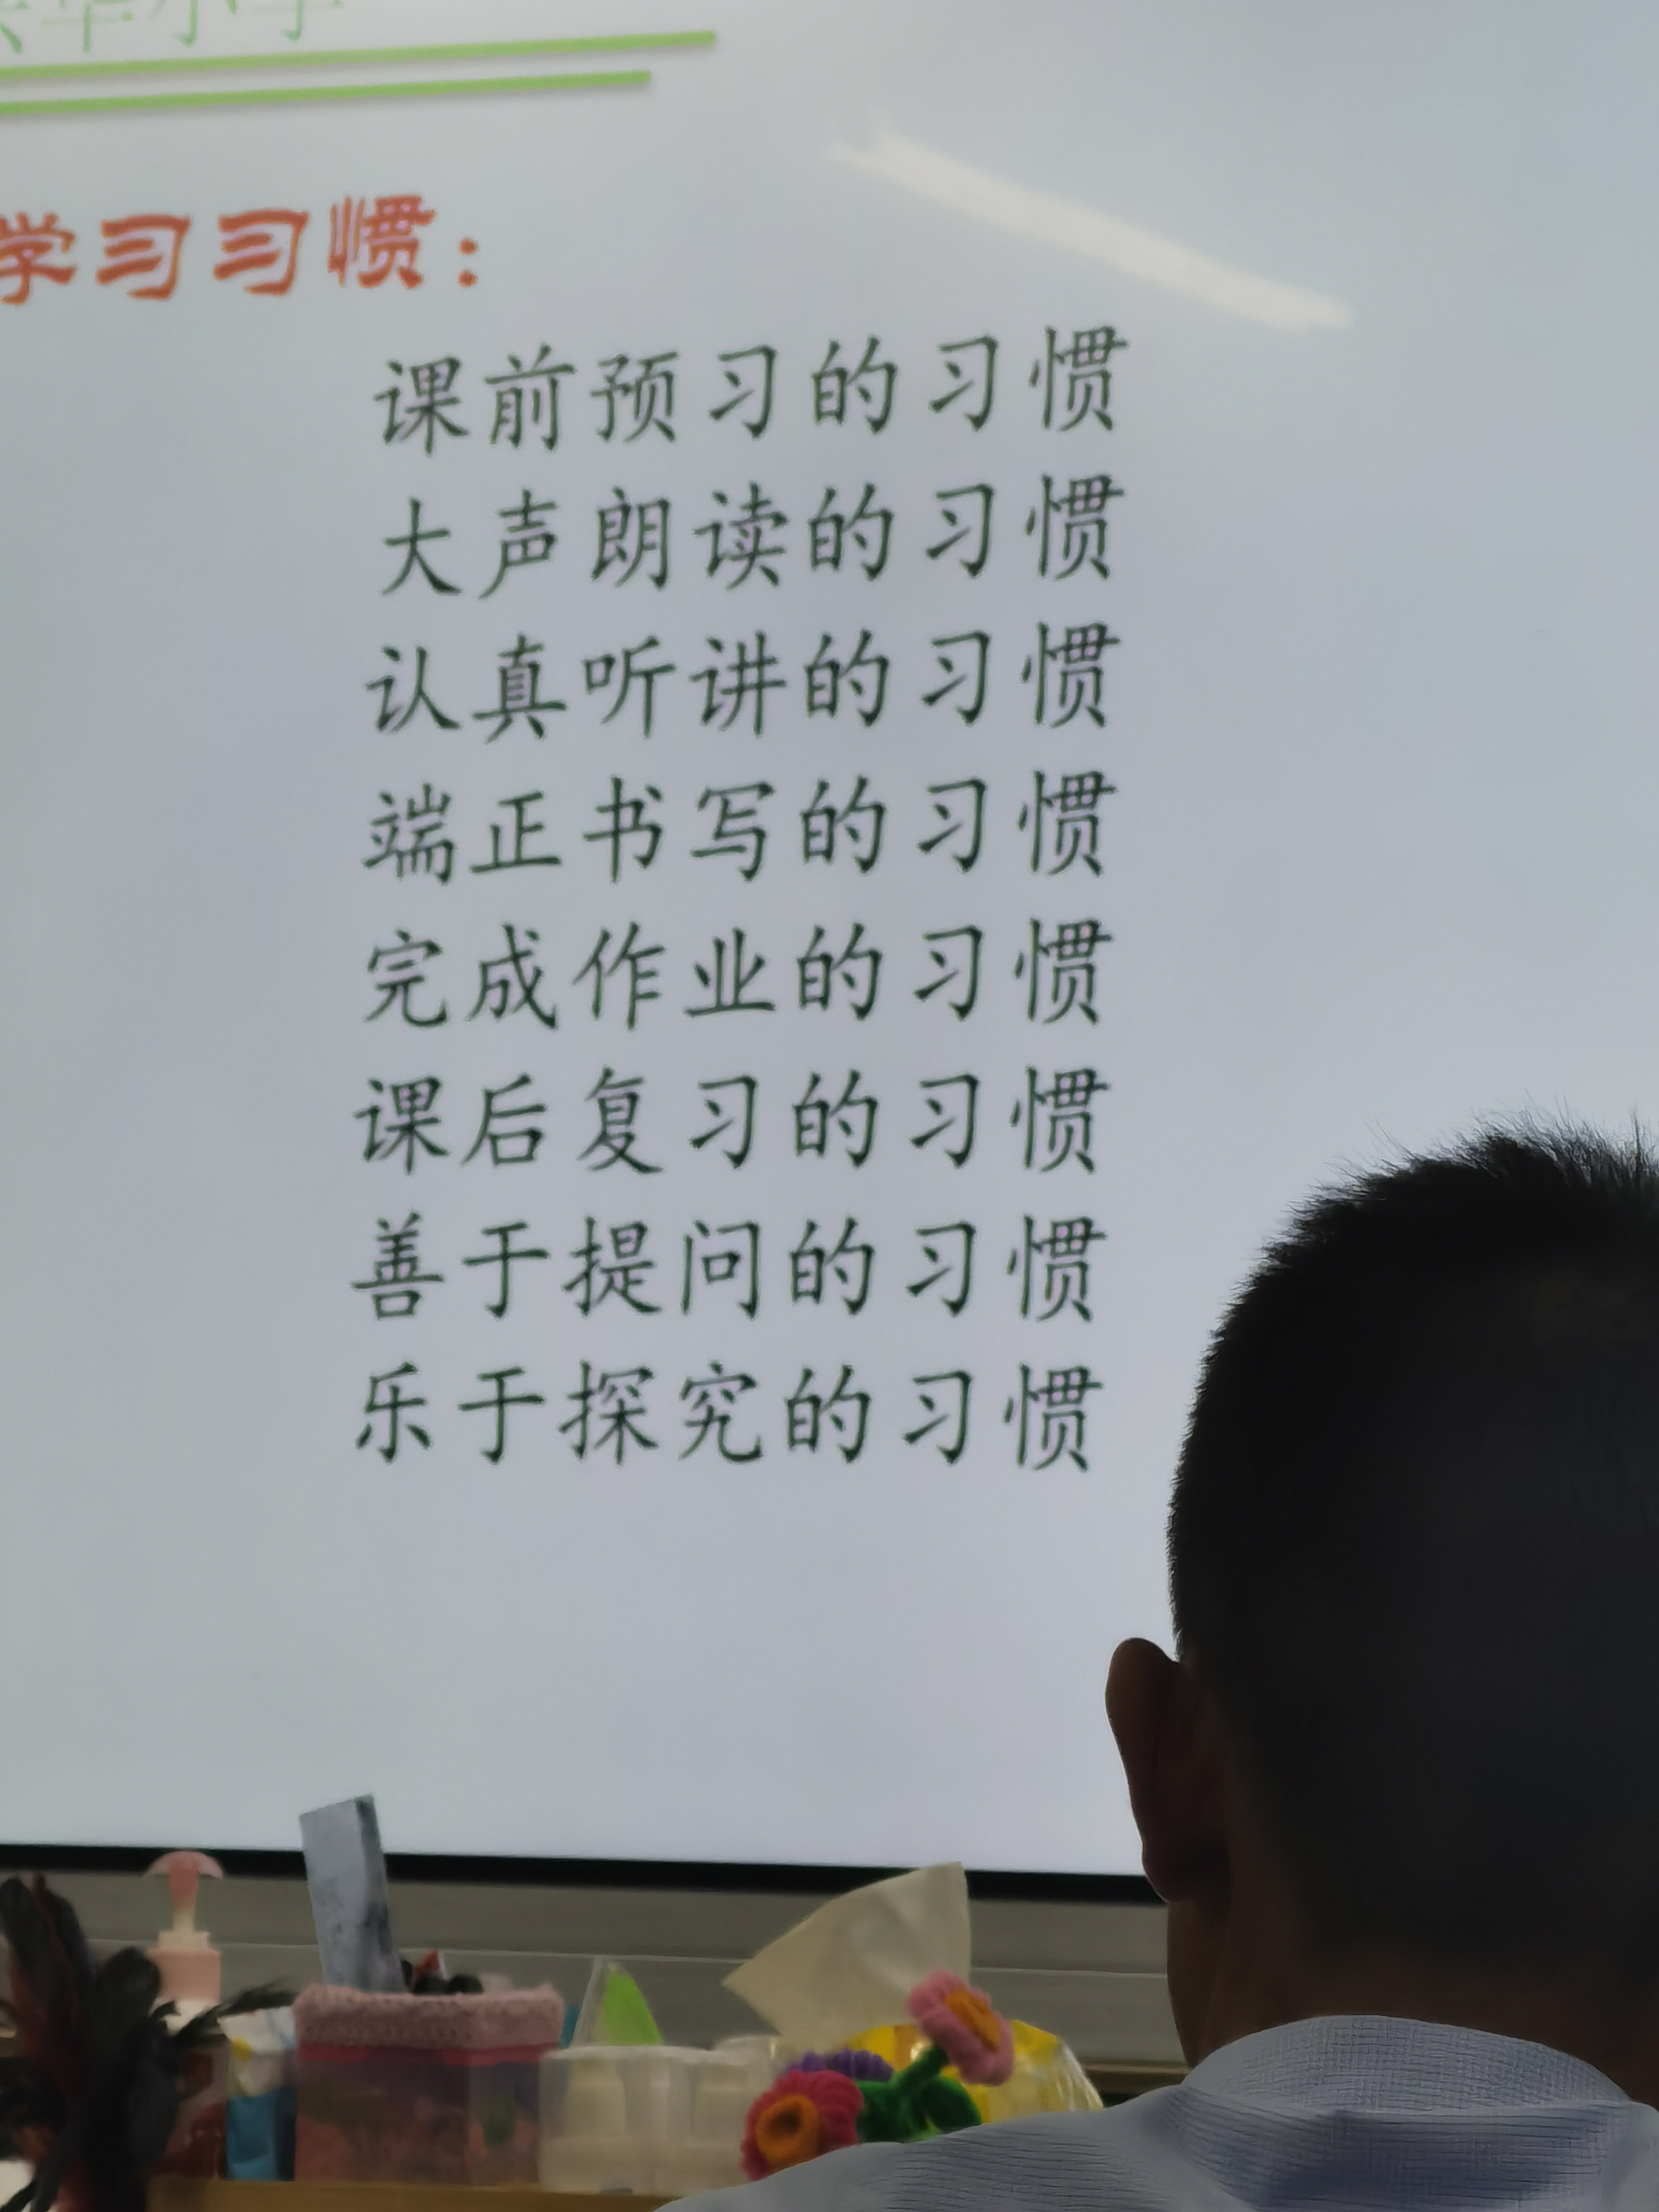 华小学
学习习惯：
课前预习的习惯
大声朗读的习惯
认真听讲的习惯
端正书写的习惯
完成作业的习惯
课后复习的习惯
善于提问的习惯
乐于探究的习惯